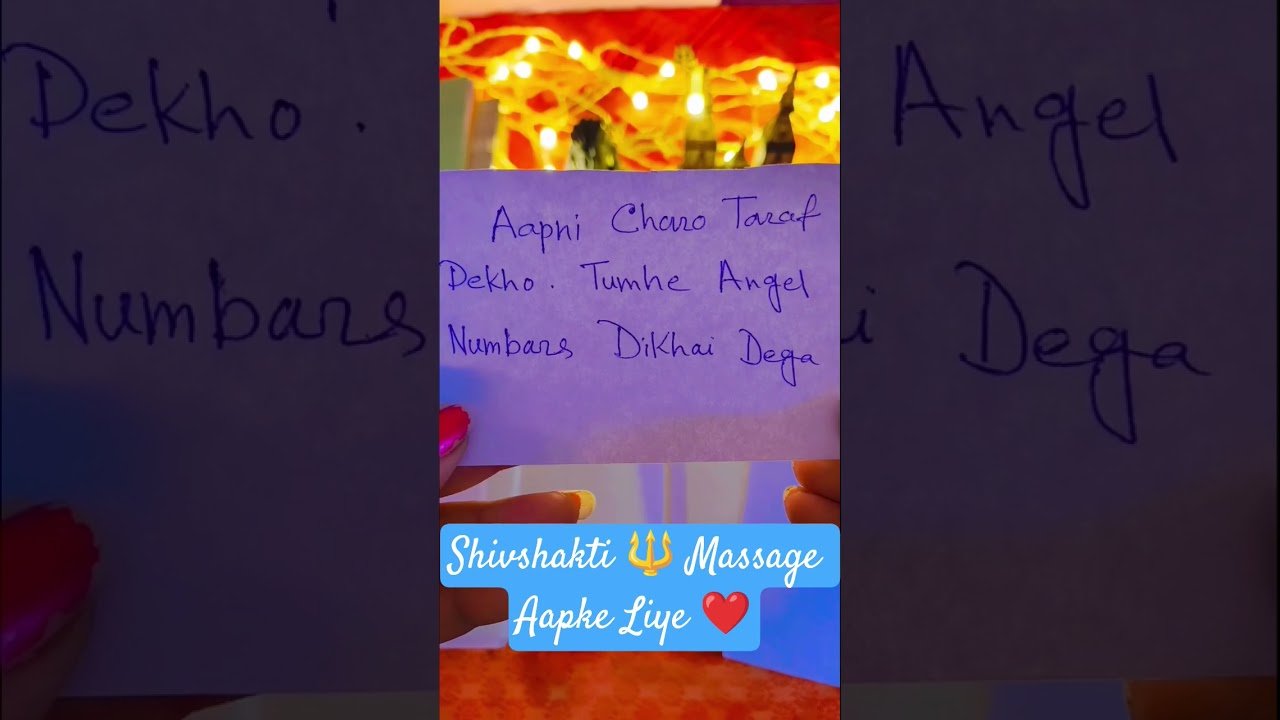 Aapni Charo Taraf
Dekho. Tumhe Angel
Numbars Dikhai Dega
Shivshakti 🔱 Massage
Aapke Liye ❤️